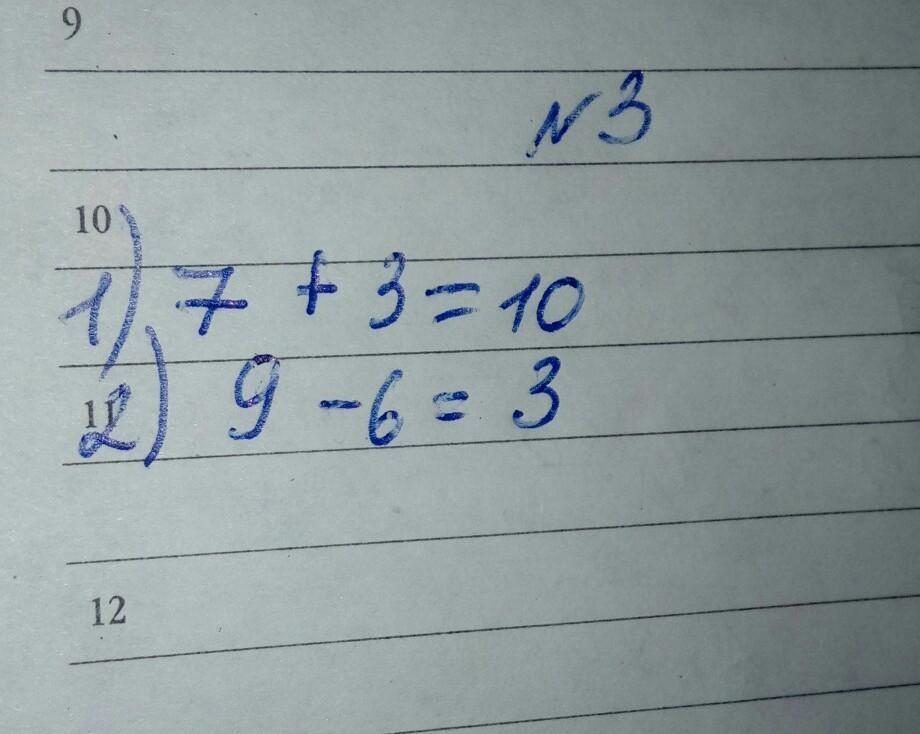 9
N 3
10
1) 7 + 3 = 10
11
2) 9 - 6 = 3
12